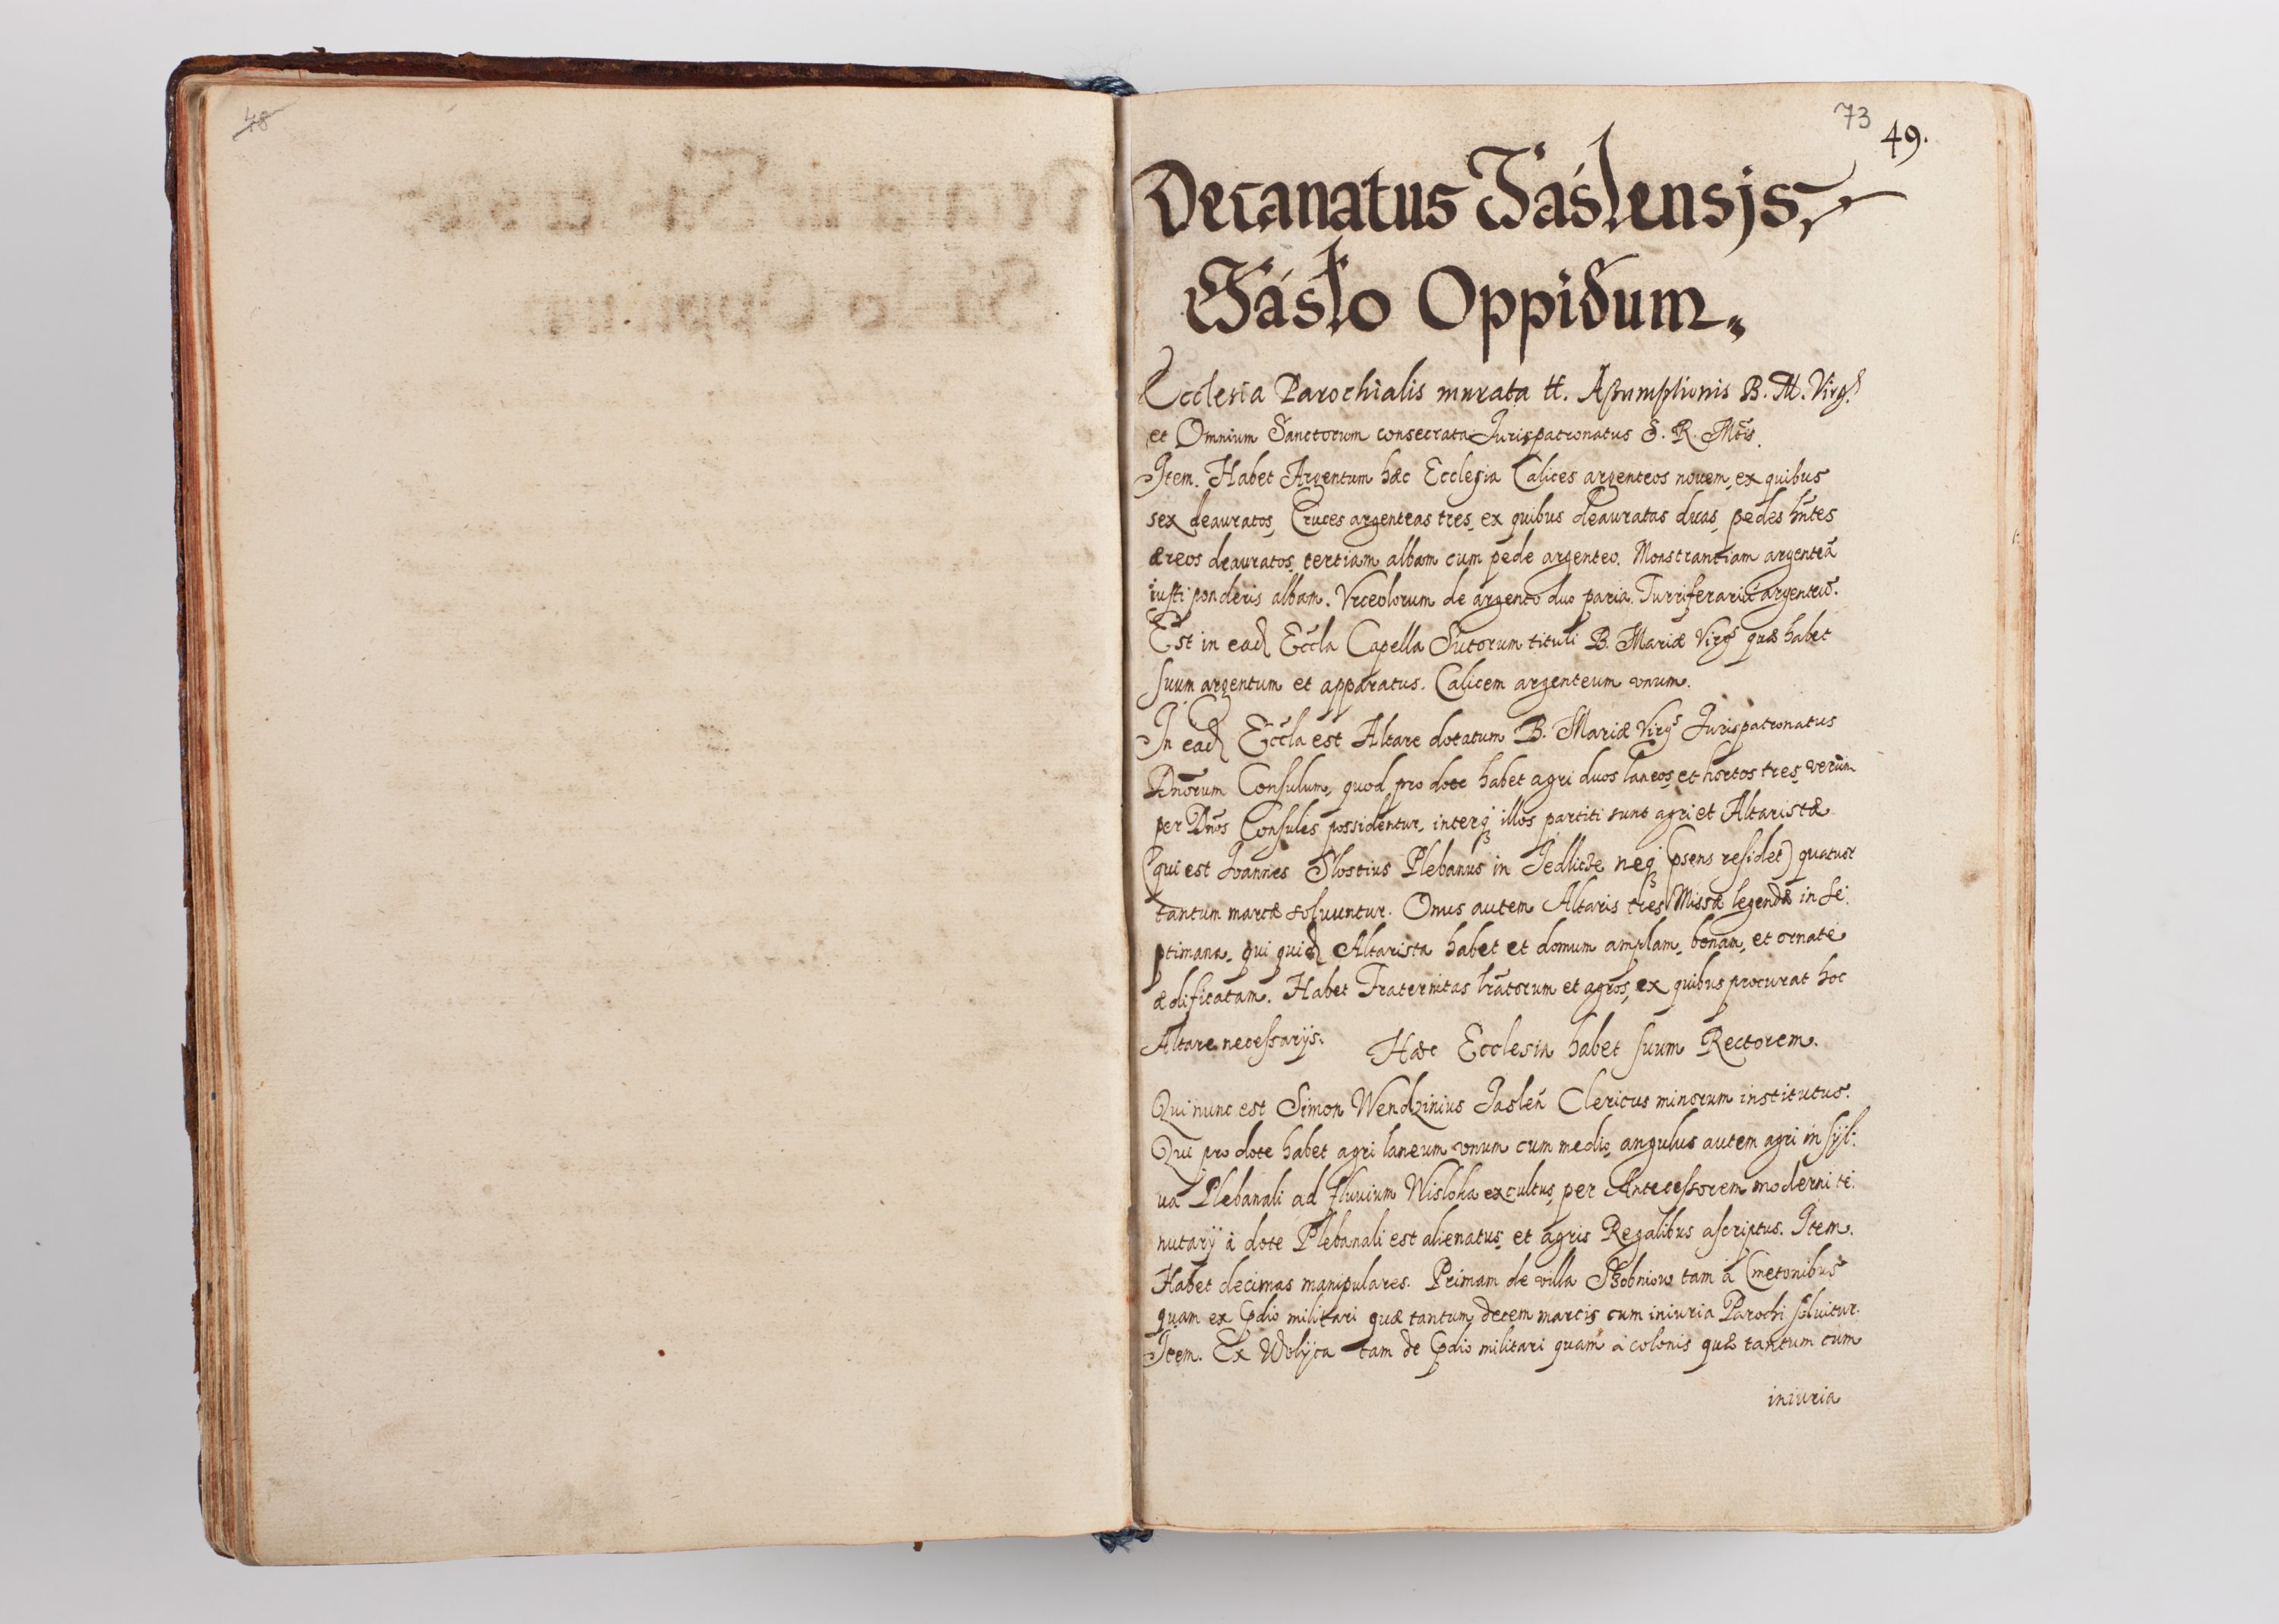 48
73
49.
Decanatus Jásłensis
Jásło Oppidum
Ecclesia Parochialis murata tt. Assumptionis B. M. Virg.
et Omnium Sanctorum consecrata Jurispatronatus S. R. Mtis.
Item. Habet Argentum hæc Ecclesia Calices argenteos novem, ex quibus
sex deauratos, Cruces argenteas tres, ex quibus deauratas duas, pedes hñtes
æreos deauratos, tertiam albam cum pede argenteo. Monstrantiam argenteã
iusti ponderis albam. Vrceolorum de argento duo paria. Turriferariũ argenteũ.
Est in ead Eccla Capella Sutorum tituli B. Mariæ Virgs quæ habet
suum argentum et apparatus. Calicem argenteum vnum.
In ead Eccla est Altare dotatum B. Mariæ Virgs Jurispatronatus
Dnorum Consulum, quod pro dote habet agri duos laneos, et hortos tres, verum
per Dnos Consules possidentur, interq illos partiti sunt agri et Altaristæ
(qui est Joannes Slostius Plebanus in Jedlicze neq psens residet) quatuor
tantum marcæ solvuntur. Onus autem Altaris tres Missæ legendæ in se:
ptimana, qui quid Altarista habet et domum amplam, bonam, et ornate
ædificatam. Habet Fraternitas lratorum et agros, ex quibus procurat hoc
Altare necessarijs. Hæc Ecclesia habet suum Rectorem.
Qui nunc est Simon Wendzinius Jasleñ Clericus minorum institutus.
Qui pro dote habet agri laneum vnum cum medio, angulus autem agri in syl:
ua Plebanali ad fluvium Wisloka excultus, per Antecessorem moderni te:
nutarij à dote Plebanali est alienatus, et agris Regalibus ascriptus. Item.
Habet decimas manipulares. Primam de villa Sobniow tam à Cmetonibus
quam ex pdio militari quæ tantum decem marcis cum iniuria Parochi solvitur.
Item. Ex Wolijca tam de pdio militari quam à colonis quæ tantum cum
iniuria